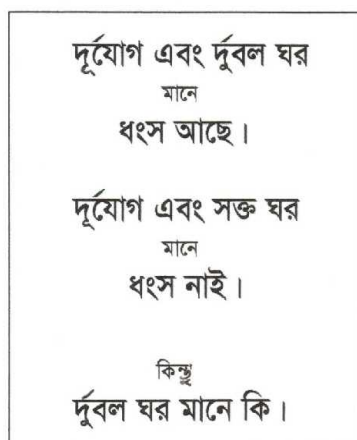 দূর্যোগ এবং র্দুবল ঘর
মানে
ধংস আছে।
দূর্যোগ এবং সক্ত ঘর
মানে
ধংস নাই।
কিন্তু
র্দুবল ঘর মানে কি।